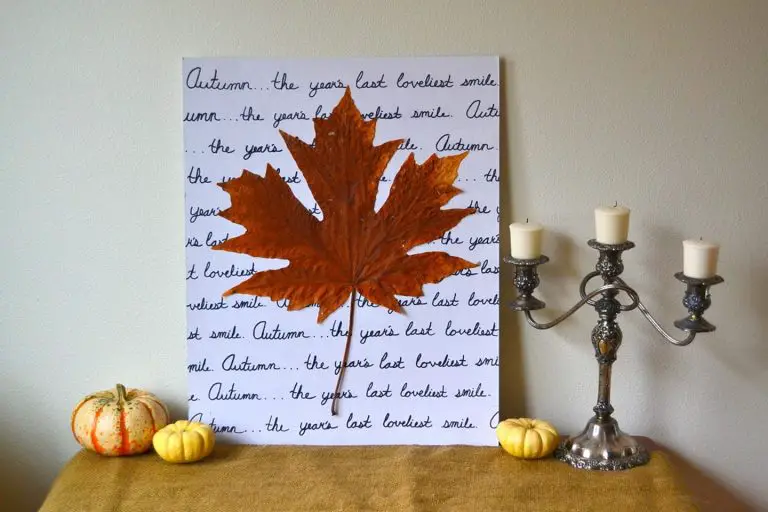 Autumn...the year's last loveliest smile.
umn...the year's loveliest smile. Autu
...the year's ile. Autumn.
the last ... th
year the year
r's las
t loveliest last
veliest smile. the year's last lovel
st smile. Autumn...the year's last loveliest
mile. Autumn...the year's last loveliest smi
e Autumn...the year's last loveliest smile.
Autumn...the year's last loveliest smile. A